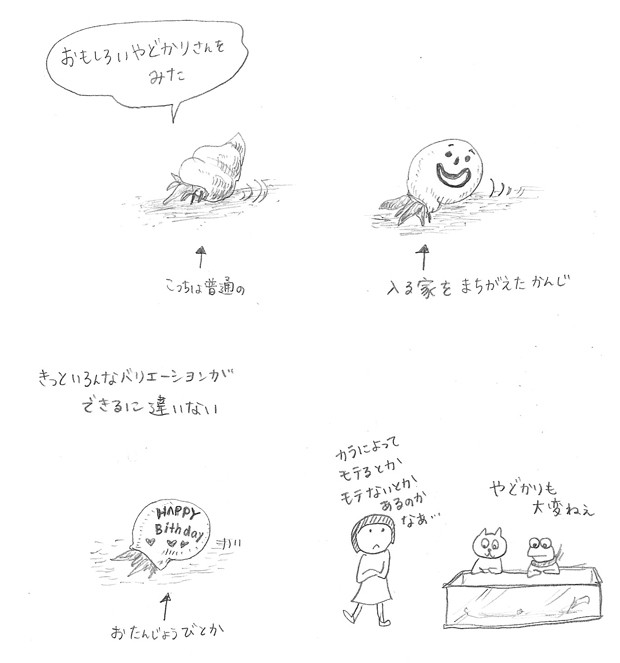 おもしろいやどかりさんを
みた
こっちは普通の
入る家をまちがえたかんじ
きっといろんなバリエーションが
できるに違いない
HAPPY
Bithday
おたんじょうびとか
カラによって
モテるとか
モテないとか
あるのか
なあ…
やどかりも
大変ねぇ